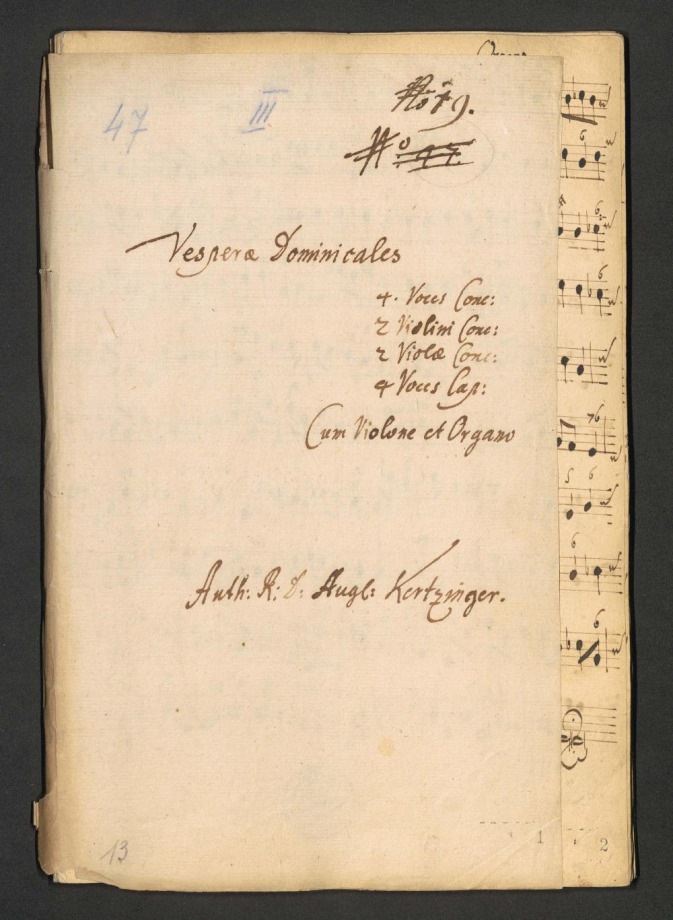 47
III
No 19.
Vesperæ Dominicales
4. Voces Conc:
2 Violini Conc:
2 Violæ Conc:
4 Voces Cap:
Cum Violone et Organo
Auth: R: D: Augl: Kertzinger.
13
1
2
6
6
6
6
76
5 6
6
6